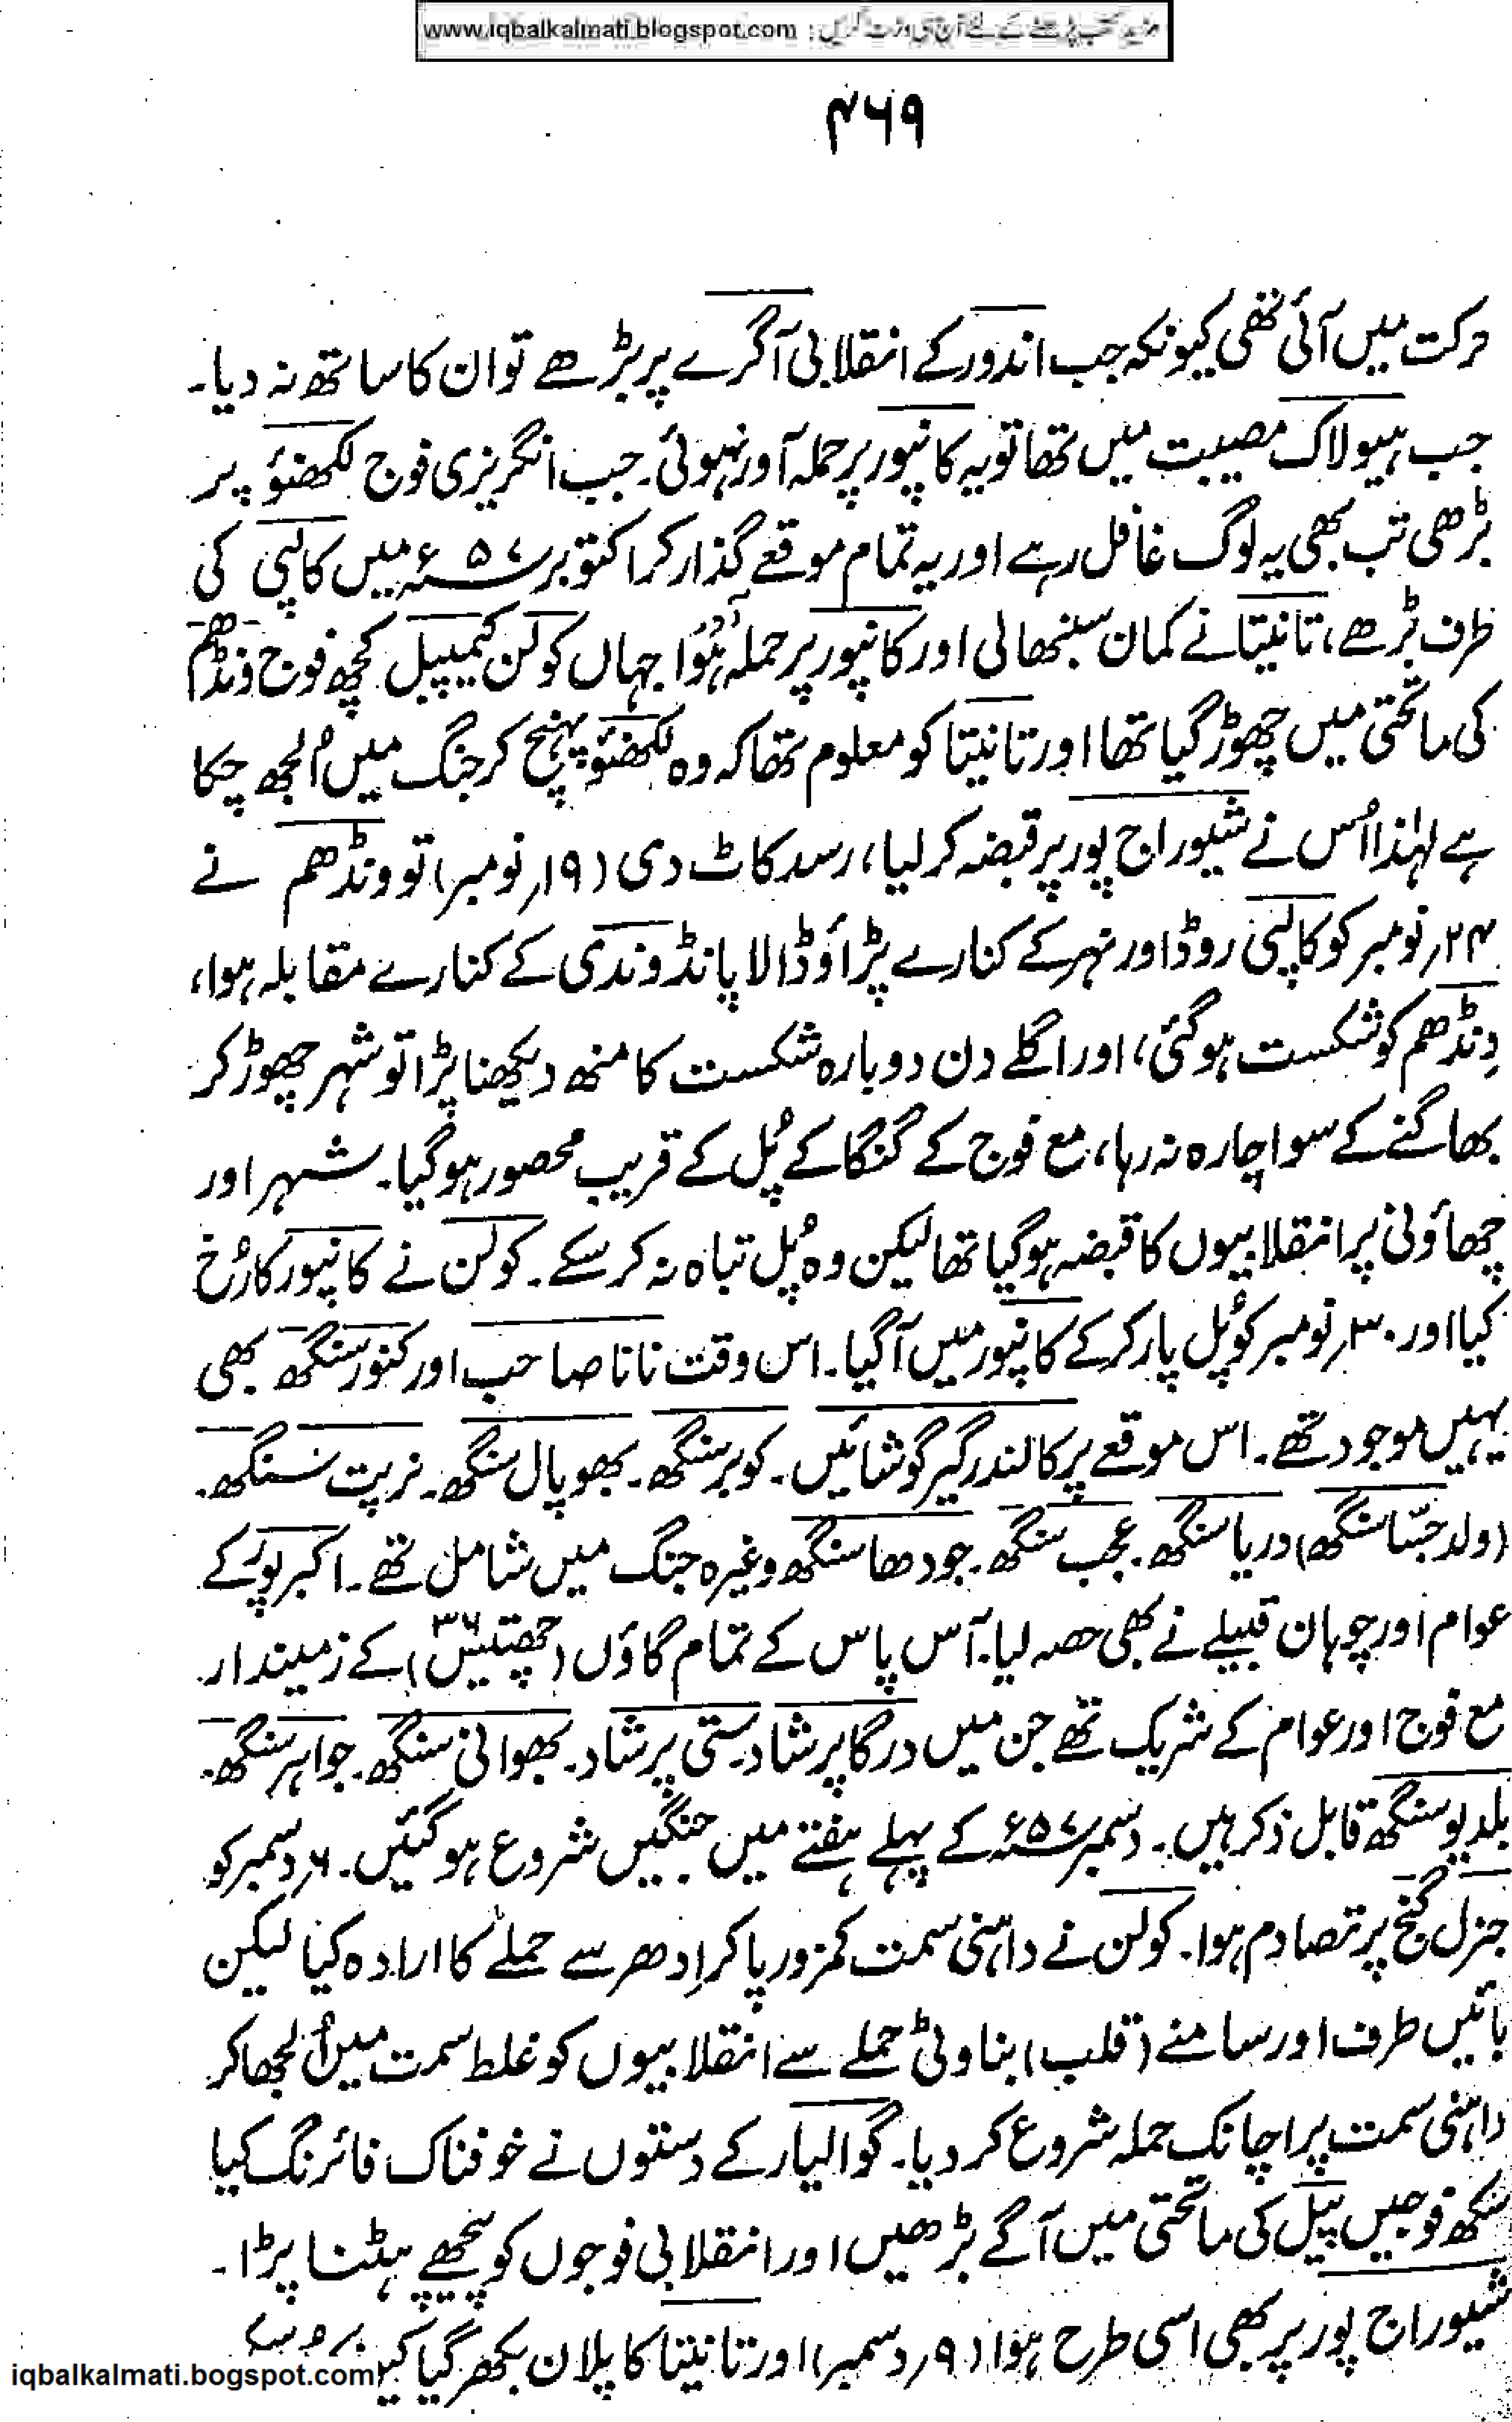 مزید کتب پڑھنے کے لئے آج ہی وزٹ کریں : www.iqbalkalmati.blogspot.com
۴۶۹
حرکت میں آئی تھی کیونکہ جب اندور کے انقلابی آگرے پر بڑھے تو ان کا ساتھ نہ دیا۔
جب ہیولاک مصیبت میں تھا تو یہ کانپور پر حملہ آور نہ ہوئی۔ جب انگریزی فوج لکھنؤ پر
بڑھی تب بھی یہ لوگ غافل رہے اور یہ تمام موقعے گذار کر اکتوبر ۵۷ء میں کالپی کی
طرف بڑھے، تانیتا نے کمان سنبھالی اور کانپور پر حملہ ہُوا جہاں کولن کیمپبل کچھ فوج ونڈھم
کی ماتحتی میں چھوڑ گیا تھا اور تانیتا کو معلوم تھا کہ وہ لکھنؤ پہنچ کر جنگ میں اُلجھ چکا
ہے لہٰذا اُس نے شیوراج پور پر قبضہ کر لیا، رسد کاٹ دی (۱۹؍ نومبر) تو ونڈھم نے
۲۴؍ نومبر کو کالپی روڈ اور نہر کے کنارے پڑاؤ ڈالا پانڈو ندی کے کنارے مقابلہ ہوا،
وِنڈھم کو شکست ہو گئی، اور اگلے دن دوبارہ شکست کا منھ دیکھنا پڑا تو شہر چھوڑ کر
بھاگنے کے سوا چارہ نہ رہا، مع فوج کے گنگا کے پُل کے قریب محصور ہو گیا۔ شہر اور
چھاؤنی پر انقلابیوں کا قبضہ ہو گیا تھا لیکن وہ پُل تباہ نہ کر سکے۔ کولن نے کانپور کا رُخ
کیا اور ۳۰؍ نومبر کو پُل پار کر کے کانپور میں آ گیا۔ اس وقت نانا صاحب اور کنور سنگھ بھی
یہیں موجود تھے۔ اس موقعے پر کالندر گیر گوشائیں۔ کوبر سنگھ۔ بھوپال سنگھ۔ نرپت سنگھ۔
(ولد جسّا سنگھ) دریا سنگھ۔ عجب سنگھ۔ جودھا سنگھ وغیرہ جنگ میں شامل تھے۔ اکبر پور کے
عوام اور چوہان قبیلے نے بھی حصہ لیا۔ آس پاس کے تمام گاؤں (چھتیس ۳۶) کے زمیندار
مع فوج اور عوام کے شریک تھے جن میں درگا پرشاد۔ ستی پرشاد۔ بھوانی سنگھ۔ جواہر سنگھ۔
بلدیو سنگھ قابل ذکر ہیں۔ دسمبر ۵۷ء کے پہلے ہفتے میں جنگیں شروع ہو گئیں۔ ۶؍ دسمبر کو
جنرل گنج پر تصادم ہوا۔ کولن نے داہنی سمت کمزور پا کر اِدھر سے حملے کا ارادہ کیا لیکن
بائیں طرف اور سامنے (قلب) بناوٹی حملے سے انقلابیوں کو غلط سمت میں اُلجھا کر
داہنی سمت پر اچانک حملہ شروع کر دیا۔ گوالیار کے دستوں نے خوفناک فائرنگ کیا
سکھ فوجیں پیل کی ماتحتی میں آگے بڑھیں اور انقلابی فوجوں کو پیچھے ہٹنا پڑا۔
شیوراج پور پر بھی اسی طرح ہوا (۹؍ دسمبر) اور تانیتا کا پلان بکھر گیا
iqbalkalmati.bogspot.com